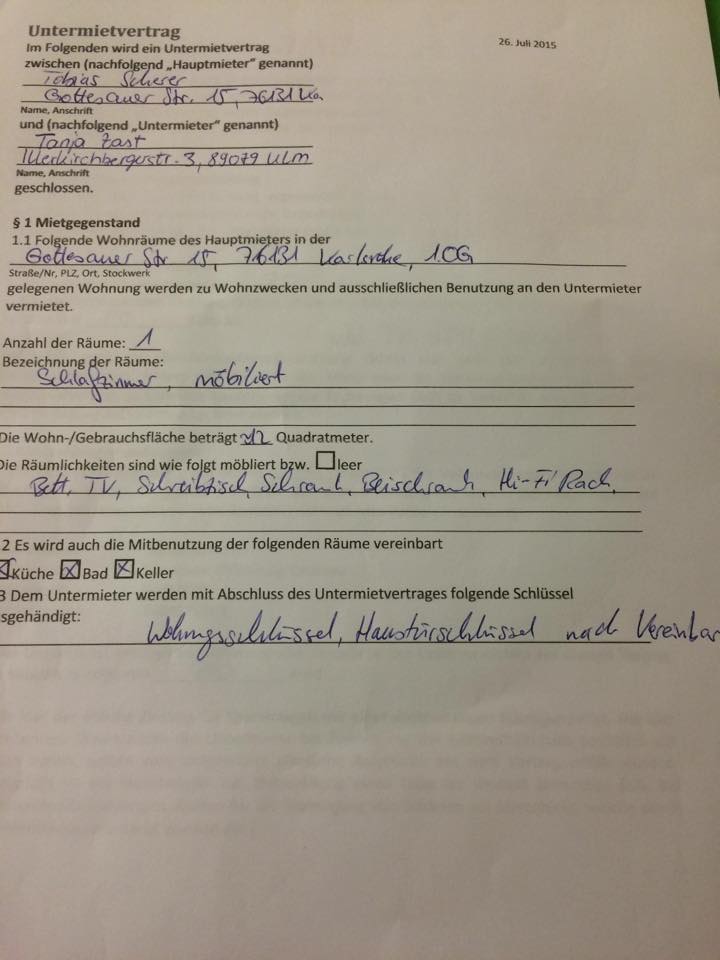 Untermietvertrag
26. Juli 2015
Im Folgenden wird ein Untermietvertrag
zwischen (nachfolgend „Hauptmieter“ genannt)
Tobias Scherer
Gottesauer Str. 15, 76131 Ka
Name, Anschrift
und (nachfolgend „Untermieter“ genannt)
Tanja Zast
Illerkirchbergerstr. 3, 89079 Ulm
Name, Anschrift
geschlossen.
§ 1 Mietgegenstand
1.1 Folgende Wohnräume des Hauptmieters in der
Gottesauer Str 15, 76131 Karlsruhe, 1.OG
Straße/Nr, PLZ, Ort, Stockwerk
gelegenen Wohnung werden zu Wohnzwecken und ausschließlichen Benutzung an den Untermieter
vermietet.
Anzahl der Räume: 1
Bezeichnung der Räume:
Schlafzimmer, möbiliert
Die Wohn-/Gebrauchsfläche beträgt 12 Quadratmeter.
Die Räumlichkeiten sind wie folgt möbliert bzw. leer
Bett, TV, Schreibtisch, Schrank, Beischrank, Hi-Fi Rack,
2 Es wird auch die Mitbenutzung der folgenden Räume vereinbart
Küche Bad Keller
3 Dem Untermieter werden mit Abschluss des Untermietvertrages folgende Schlüssel
sgehändigt:
Wohnungsschlüssel, Haustürschlüssel nach Vereinbar